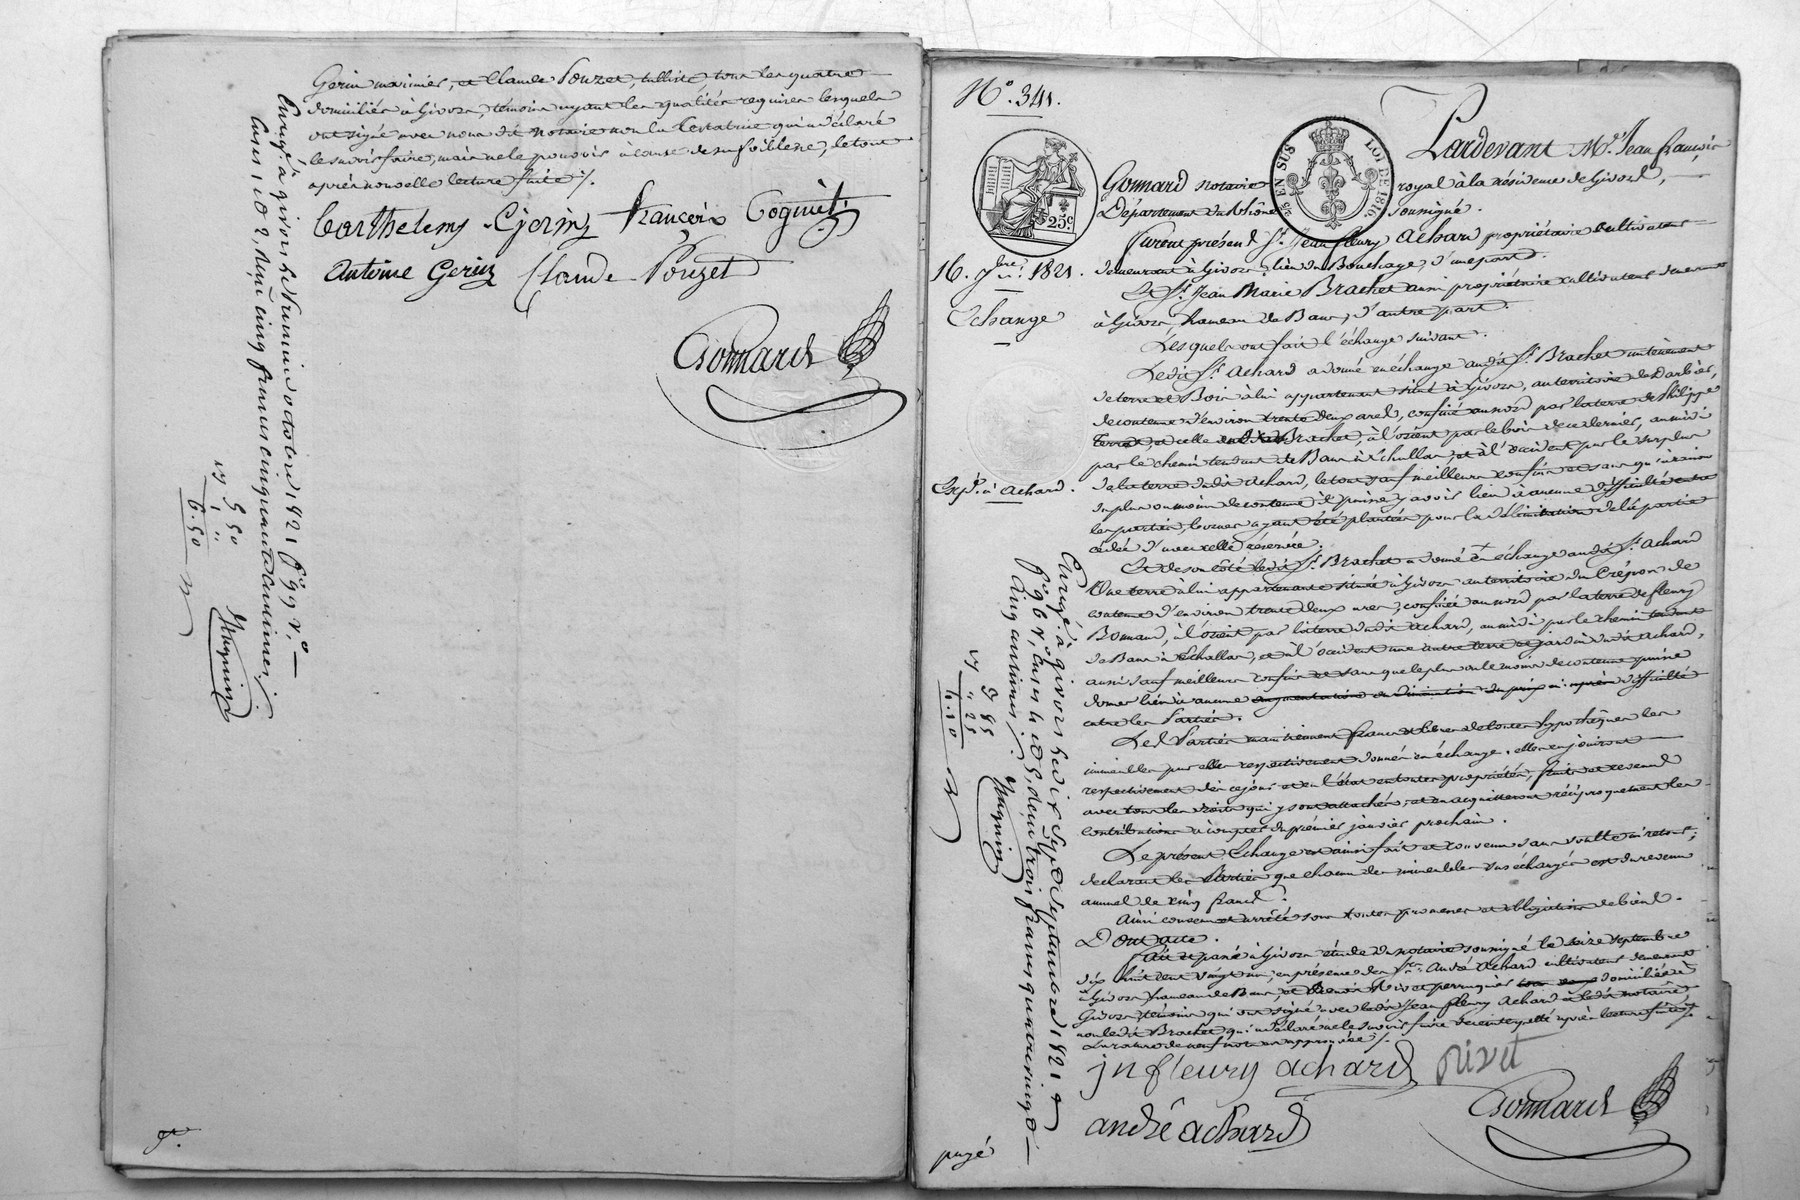 Gerin marinier, et Claude Pouzet, tulliste, tous les quatre
domiciliés à Givors, témoins ayant les qualités requises lesquels
ont signé avec nous dit notaire non la testatrice qui a déclaré
le savoir faire, mais ne le pouvoir à cause de sa foiblesse, le tout
après nouvelle lecture faite ./.
Barthelemy Gerin François Cognet
Antoine Gerin Claude Pouzet
Gonnard
Enregé. à givors le vingt un octobre 1821 fo 99 vo.
Cases 1 et 2, reçu cinq francs cinquante centimes ./.
5 50
6.50
pr.
No. 341.
25 c
25 EN SUS
LOI DE 1816
16. 7bre. 1821.
Echange
Expé. à Achard.
Pardevant Me. Jean François
Gonnard notaire royal à la résidence de Givors,
Département du Rhône soussigné.
Furent présens Sr. Jean fleury Achard propriétaire cultivateur
demeurant à Givors, lieu du Bouchage, d'une part.
Et Sr. Jean Marie Brachet aussi propriétaire cultivateur demeurant
à Givors, hameau de Bans, d'autre part.
Lesquels ont fait l'échange suivant.
Ledit Sr. Achard a donné en échange audit Sr. Brachet un ténement
de terre et Bois à lui appartenant situé à Givors, au territoire du Barbier,
de contenue d'environ trente deux ares, confiné au nord par la terre de Philippe
Terrat, et celle dudit Brachet, à l'orient par le bois de ce dernier, au midi
par le chemin tendant de Bans à Echallas, et à l'occident par le surplus
de la terre dudit Achard, le tout sauf meilleurs confins et sans qu'à raison
du plus ou moins de contenue il puisse y avoir lieu à aucune difficulté entre
les parties, les bornes ayant été plantées pour la délimitation de la partie
cédée d'avec celle réservée.
Et de son côté ledit Sr. Brachet a donné en échange audit Sr. Achard
Une terre à lui appartenante située à Givors au territoire du Crépon de
contenue d'environ trente deux ares, confinée au nord par la terre de fleury
Bonnand, à l'orient par la terre dudit Achard, au midi par le chemin tendant
de Bans à Echallas, et à l'occident une autre terre et jardin dudit Achard,
aussi sauf meilleurs confins et sans que le plus ou le moins de contenue puisse
donner lieu à aucune augmentation ou diminution du prix ni après difficulté
entre les Parties.
Les Parties maintiennent francs et libres de toutes hypothèques les
immeubles par elles respectivement donnés en échange, elles en jouiront
respectivement dès ce jour et en l'état en toutes propriétés, fruits et revenus
avec tous les droits qui y sont attachés, et en acquitteront réciproquement les
contributions à compter du premier janvier prochain.
Le présent Echange est ainsi fait et convenu sans soulte ni retour,
déclarant les Parties que chacun des immeubles sus échangés est du revenu
annuel de cinq francs.
Ainsi convenu et arrêté sous toutes promesses et obligations de biens.
Dont acte.
Fait et passé à Givors étude du notaire soussigné le seize septembre
dix huit cent vingt un, en présence des srs. André Achard cultivateur demeurant
à Givors hameau de Bans, et Benoit Rivet perruquier domicilié à
Givors, témoins qui ont signé avec ledit Jean fleury Achard et ledit notaire
non ledit Brachet qui a déclaré ne le savoir faire de ce interpellé après lecture faite ./.
La rature de neuf mots est approuvée ./.
jn fleury achard Rivet
andré achard Gonnard
Enregé. à givors le dix Sept Septembre 1821
fo 96 vo, Cases 4 et 5, reçu trois francs quatre vingt
Cinq centimes ./.
3 85
" 25
4.10
payé